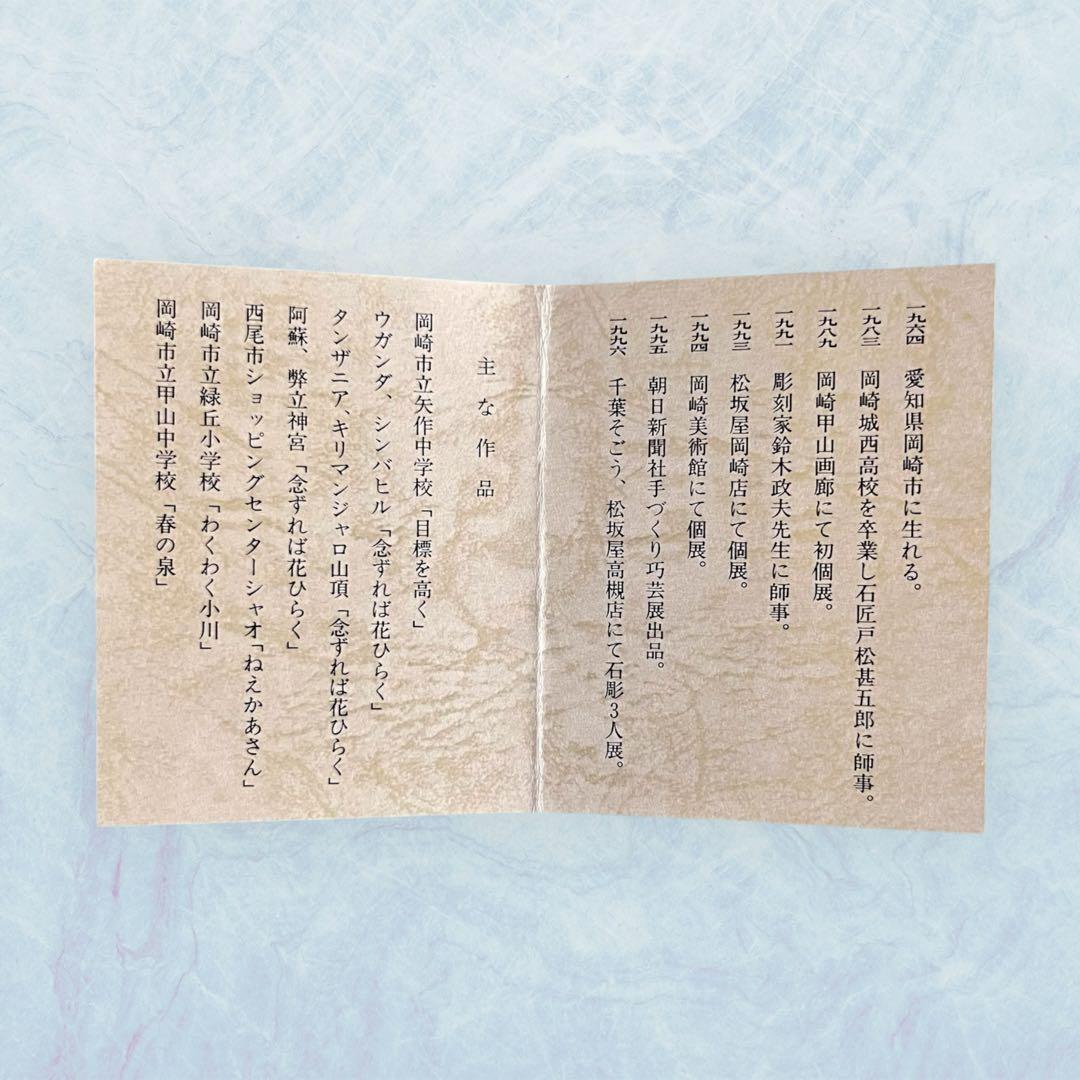 一九六四 愛知県岡崎市に生れる。
一九八三 岡崎城西高校を卒業し石匠戸松甚五郎に師事。
一九八九 岡崎甲山画廊にて初個展。
一九九一 彫刻家鈴木政夫先生に師事。
一九九三 松坂屋岡崎店にて個展。
一九九四 岡崎美術館にて個展。
一九九五 朝日新聞社手づくり巧芸展出品。
一九九六 千葉そごう、松坂屋高槻店にて石彫3人展。
主な作品
岡崎市立矢作中学校「目標を高く」
ウガンダ、シンバヒル「念ずれば花ひらく」
タンザニア、キリマンジャロ山頂「念ずれば花ひらく」
阿蘇、弊立神宮「念ずれば花ひらく」
西尾市ショッピングセンターシャオ「ねえかあさん」
岡崎市立緑丘小学校「わくわく小川」
岡崎市立甲山中学校「春の泉」